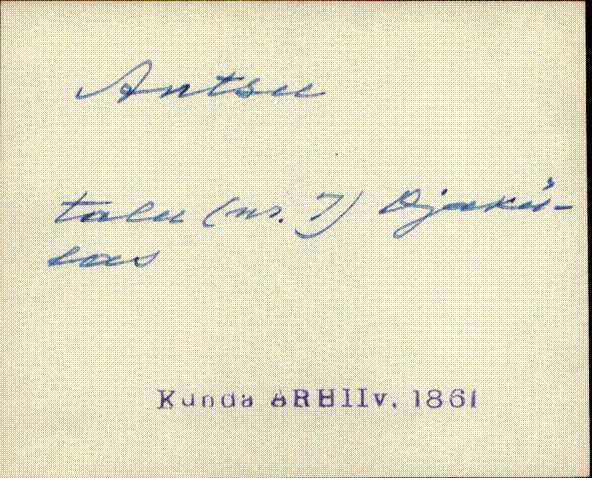 Antsu
talu (nr. 7) Ojakü-
las
Kunda ARHIIv. 1861